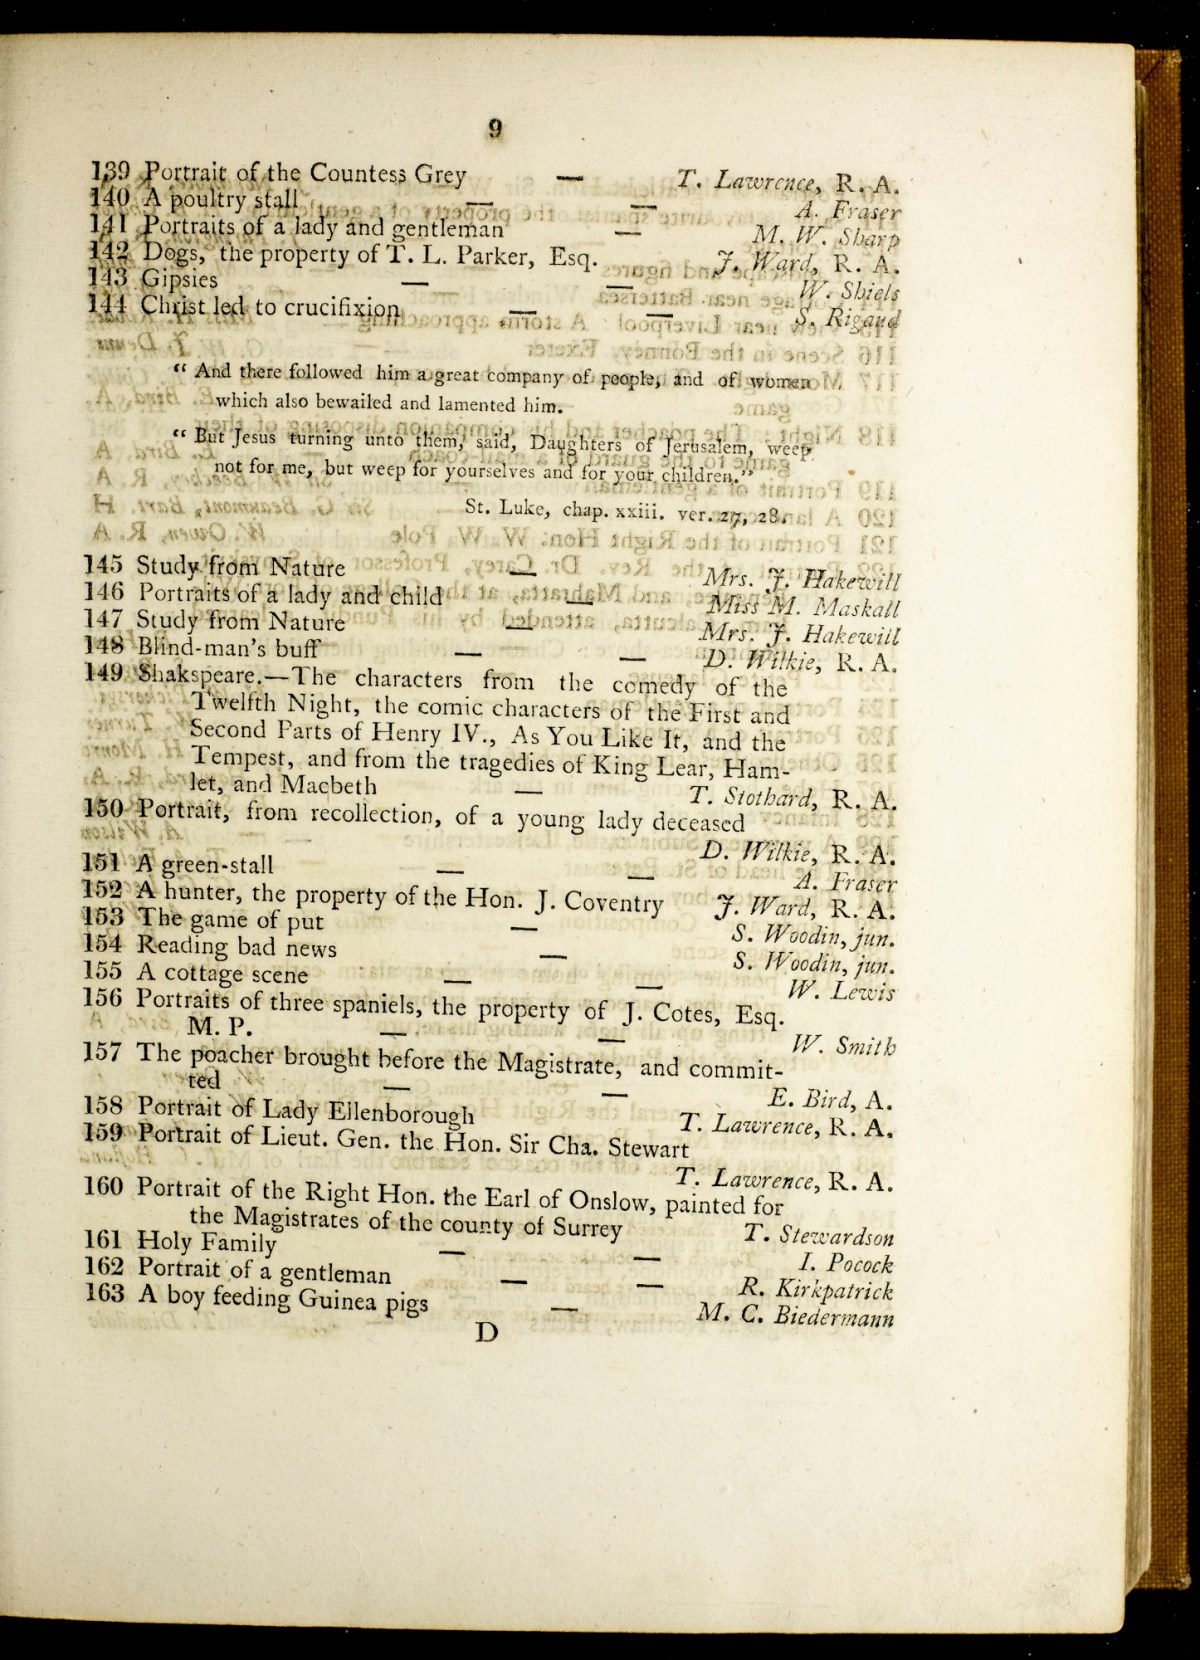 9
139 Portrait of the Countess Grey — T. Lawrence, R. A.
140 A poultry stall — — A. Fraser
141 Portraits of a lady and gentleman — M. W. Sharp
142 Dogs, the property of T. L. Parker, Esq. J. Ward, R. A.
143 Gipsies — — W. Shiels
144 Christ led to crucifixion — — S. Rigaud
“ And there followed him a great company of people, and of women
which also bewailed and lamented him.
“ But Jesus turning unto them, said, Daughters of Jerusalem, weep
not for me, but weep for yourselves and for your children.”
St. Luke, chap. xxiii. ver. 27, 28.
145 Study from Nature — Mrs. J. Hakewill
146 Portraits of a lady and child — Miss M. Maskall
147 Study from Nature — Mrs. J. Hakewill
148 Blind-man's buff — — D. Wilkie, R. A.
149 Shakspeare.—The characters from the comedy of the
Twelfth Night, the comic characters of the First and
Second Parts of Henry IV., As You Like It, and the
Tempest, and from the tragedies of King Lear, Ham-
let, and Macbeth — T. Stothard, R. A.
150 Portrait, from recollection, of a young lady deceased
D. Wilkie, R. A.
151 A green-stall — — A. Fraser
152 A hunter, the property of the Hon. J. Coventry J. Ward, R. A.
153 The game of put — S. Woodin, jun.
154 Reading bad news — S. Woodin, jun.
155 A cottage scene — — W. Lewis
156 Portraits of three spaniels, the property of J. Cotes, Esq.
M. P. — — W. Smith
157 The poacher brought before the Magistrate, and commit-
ted — — E. Bird, A.
158 Portrait of Lady Ellenborough T. Lawrence, R. A.
159 Portrait of Lieut. Gen. the Hon. Sir Cha. Stewart
T. Lawrence, R. A.
160 Portrait of the Right Hon. the Earl of Onslow, painted for
the Magistrates of the county of Surrey T. Stewardson
161 Holy Family — — I. Pocock
162 Portrait of a gentleman — — R. Kirkpatrick
163 A boy feeding Guinea pigs — M. C. Biedermann
D